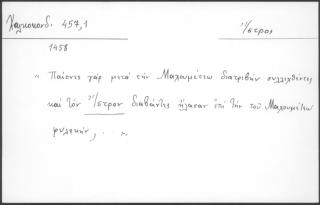 Χαλκοκονδ. 457,1
Ἴστρος
1458
" Παίονες γάρ μετά τήν Μαχουμέτεω διατριβήν συλλεχθέντες
καί τόν Ἴστρον διαβάντες ἤλασαν ἐπί τήν τοῦ Μαχουμέτεω
φυλακήν, . . "